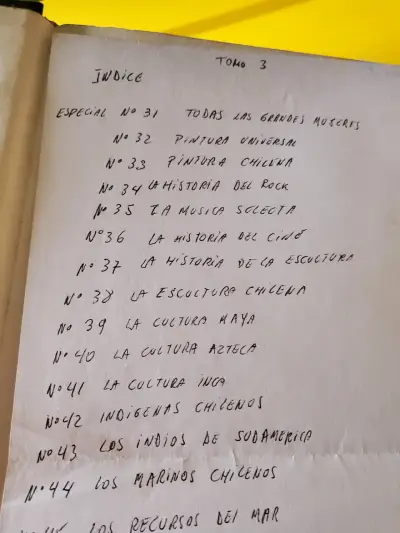 TOMO 3
INDICE
ESPECIAL Nº 31 TODAS LAS GRANDES MUJERES
Nº 32 PINTURA UNIVERSAL
Nº 33 PINTURA CHILENA
Nº 34 LA HISTORIA DEL ROCK
Nº 35 LA MUSICA SELECTA
Nº 36 LA HISTORIA DEL CINE
Nº 37 LA HISTORIA DE LA ESCULTURA
Nº 38 LA ESCULTURA CHILENA
Nº 39 LA CULTURA MAYA
Nº 40 LA CULTURA AZTECA
Nº 41 LA CULTURA INCA
Nº 42 INDIGENAS CHILENOS
Nº 43 LOS INDIOS DE SUDAMERICA
Nº 44 LOS MARINOS CHILENOS
Nº 45 LOS RECURSOS DEL MAR